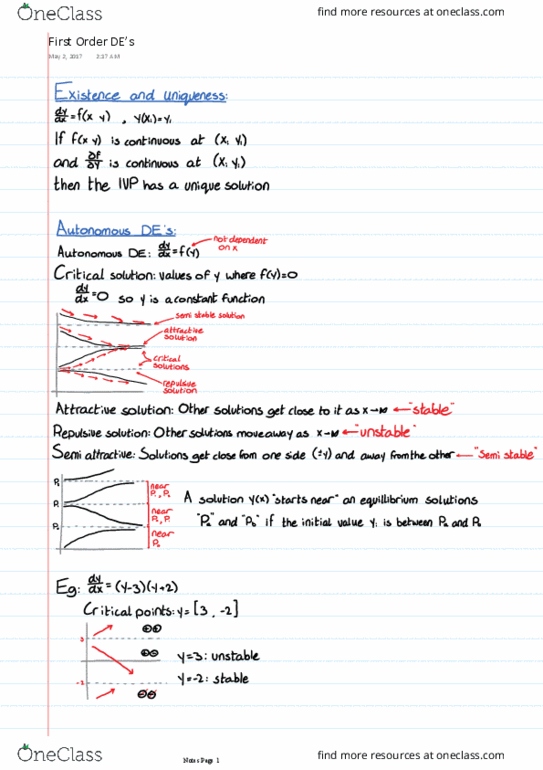 OneClass
find more resources at oneclass.com
First Order DE's
May 2, 2017 2:17 AM
Existence and uniqueness:
dy/dx = f(x y) , y(x₁)=y₁
If f(x y) is continuous at (x₁ y₁)
and ∂f/∂y is continuous at (x₁ y₁)
then the IVP has a unique solution
Autonomous DE's:
Autonomous DE: dy/dx = f(y)
not dependent on x
Critical solution: values of y where f(y)=0
dy/dx = 0 so y is a constant function
semi stable solution
attractive solution
critical solutions
repulsive solution
Attractive solution: Other solutions get close to it as x→∞ ← "stable"
Repulsive solution: Other solutions move away as x→∞ ← "unstable"
Semi attractive: Solutions get close from one side (±y) and away from the other ← "Semi stable"
near
near
near
A solution y(x) "starts near" an equillibrium solutions
and
if the initial value y₁ is between
and
Eg: dy/dx = (y-3)(y+2)
Critical points: y= [3 , -2]
3
-2
⊕⊕
⊕⊖
⊖⊖
y=3: unstable
y=-2: stable
OneClass
Notes Page 1
find more resources at oneclass.com